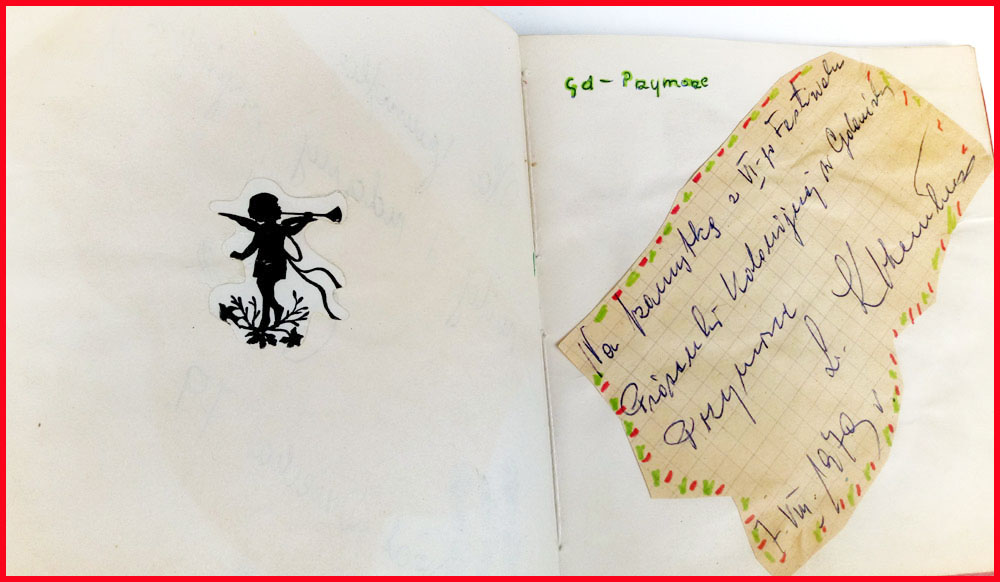 Gd - Przymorze
Na pamiątkę z VI-go Festiwalu
Piosenki Kolonijnej w Gdańsku
Przymorzu
L.
7. VIII. 1979 r.